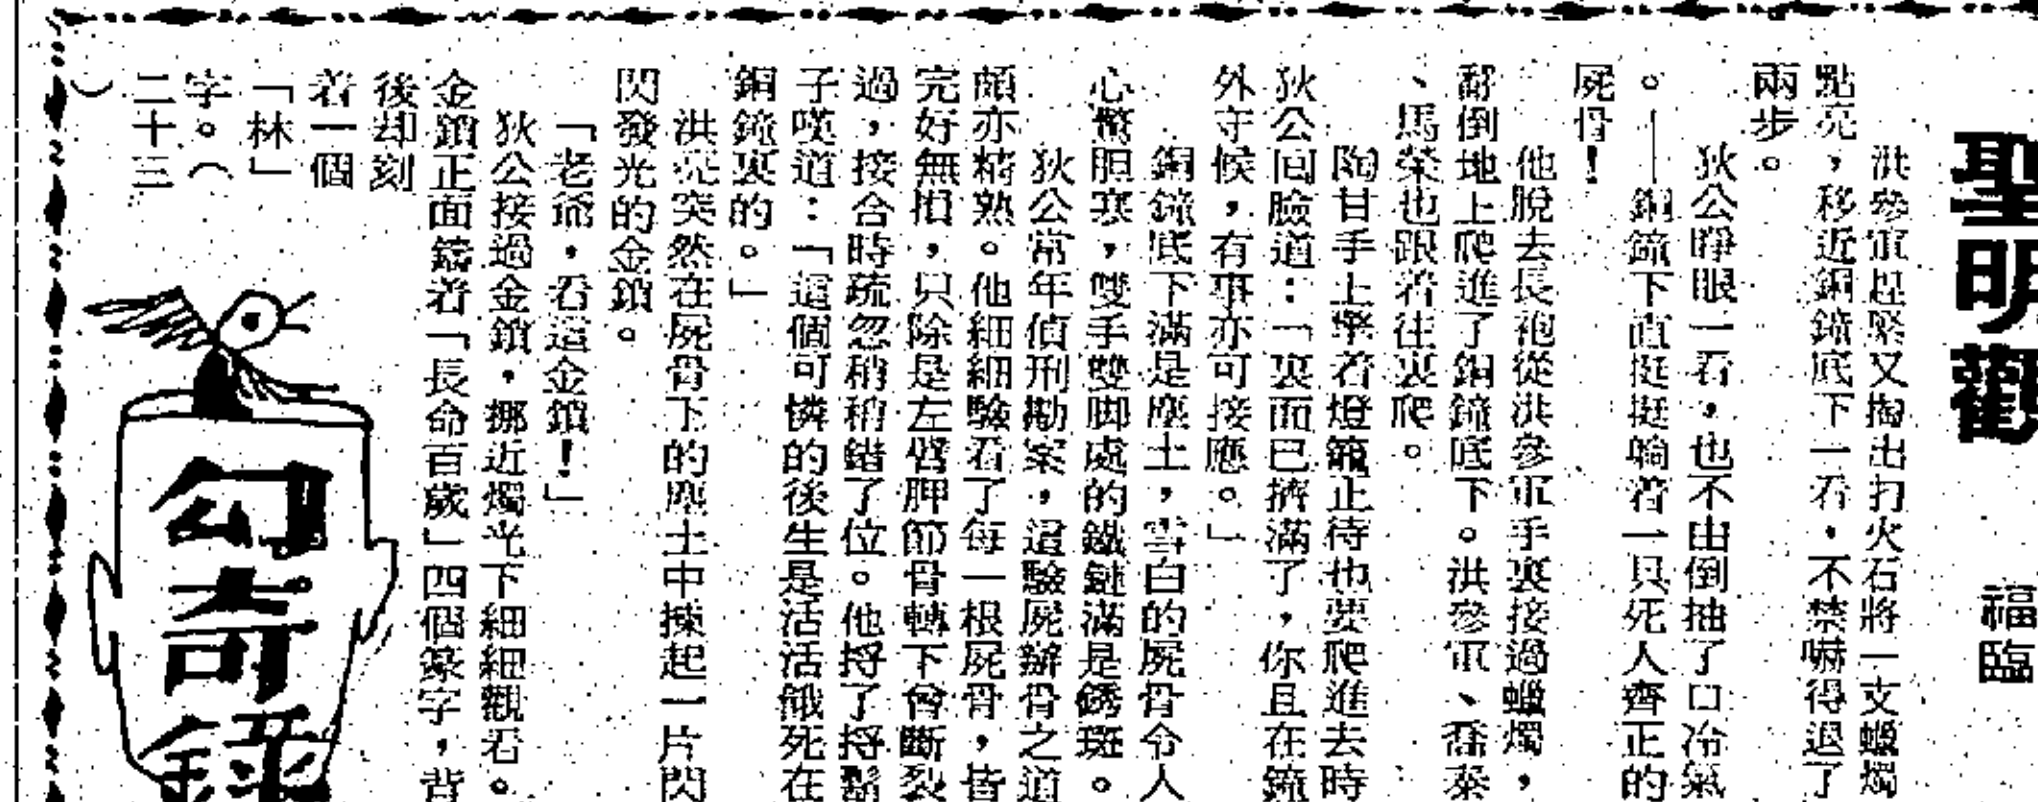 聖明觀
福臨
洪參軍趕緊又掏出打火石將一支蠟燭
點亮，移近銅鐘底下一看，不禁嚇得退了
兩步。
狄公睜眼一看，也不由倒抽了口冷氣
。——銅鐘下直挺挺躺着一具死人齊正的
屍骨！
他脫去長袍從洪參軍手裏接過蠟燭，
翻倒地上爬進了銅鐘底下。洪參軍、喬泰
、馬榮也跟着往裏爬。
陶甘手上擎着燈籠正待也要爬進去時
狄公回臉道：「裏面已擠滿了，你且在鐘
外守候，有事亦可接應。」
銅鐘底下滿是塵土，雪白的屍骨令人
心驚胆寒，雙手雙脚處的鐵鏈滿是銹斑。
狄公常年偵刑勘案，這驗屍辦骨之道
頗亦精熟。他細細驗看了每一根屍骨，皆
完好無損，只除是左臂胛節骨轉下曾斷裂
過，接合時疏忽稍稍錯了位。他捋了捋鬍
子嘆道：「這個可憐的後生是活活餓死在
銅鐘裏的。」
洪亮突然在屍骨下的塵土中揀起一片閃
閃發光的金鎖。
「老爺，看這金鎖！」
狄公接過金鎖，挪近燭光下細細觀看。
金鎖正面鑄着「長命百歲」四個篆字，背
後却刻
着一個
「林」
字。（
二十三
）
勾奇錄